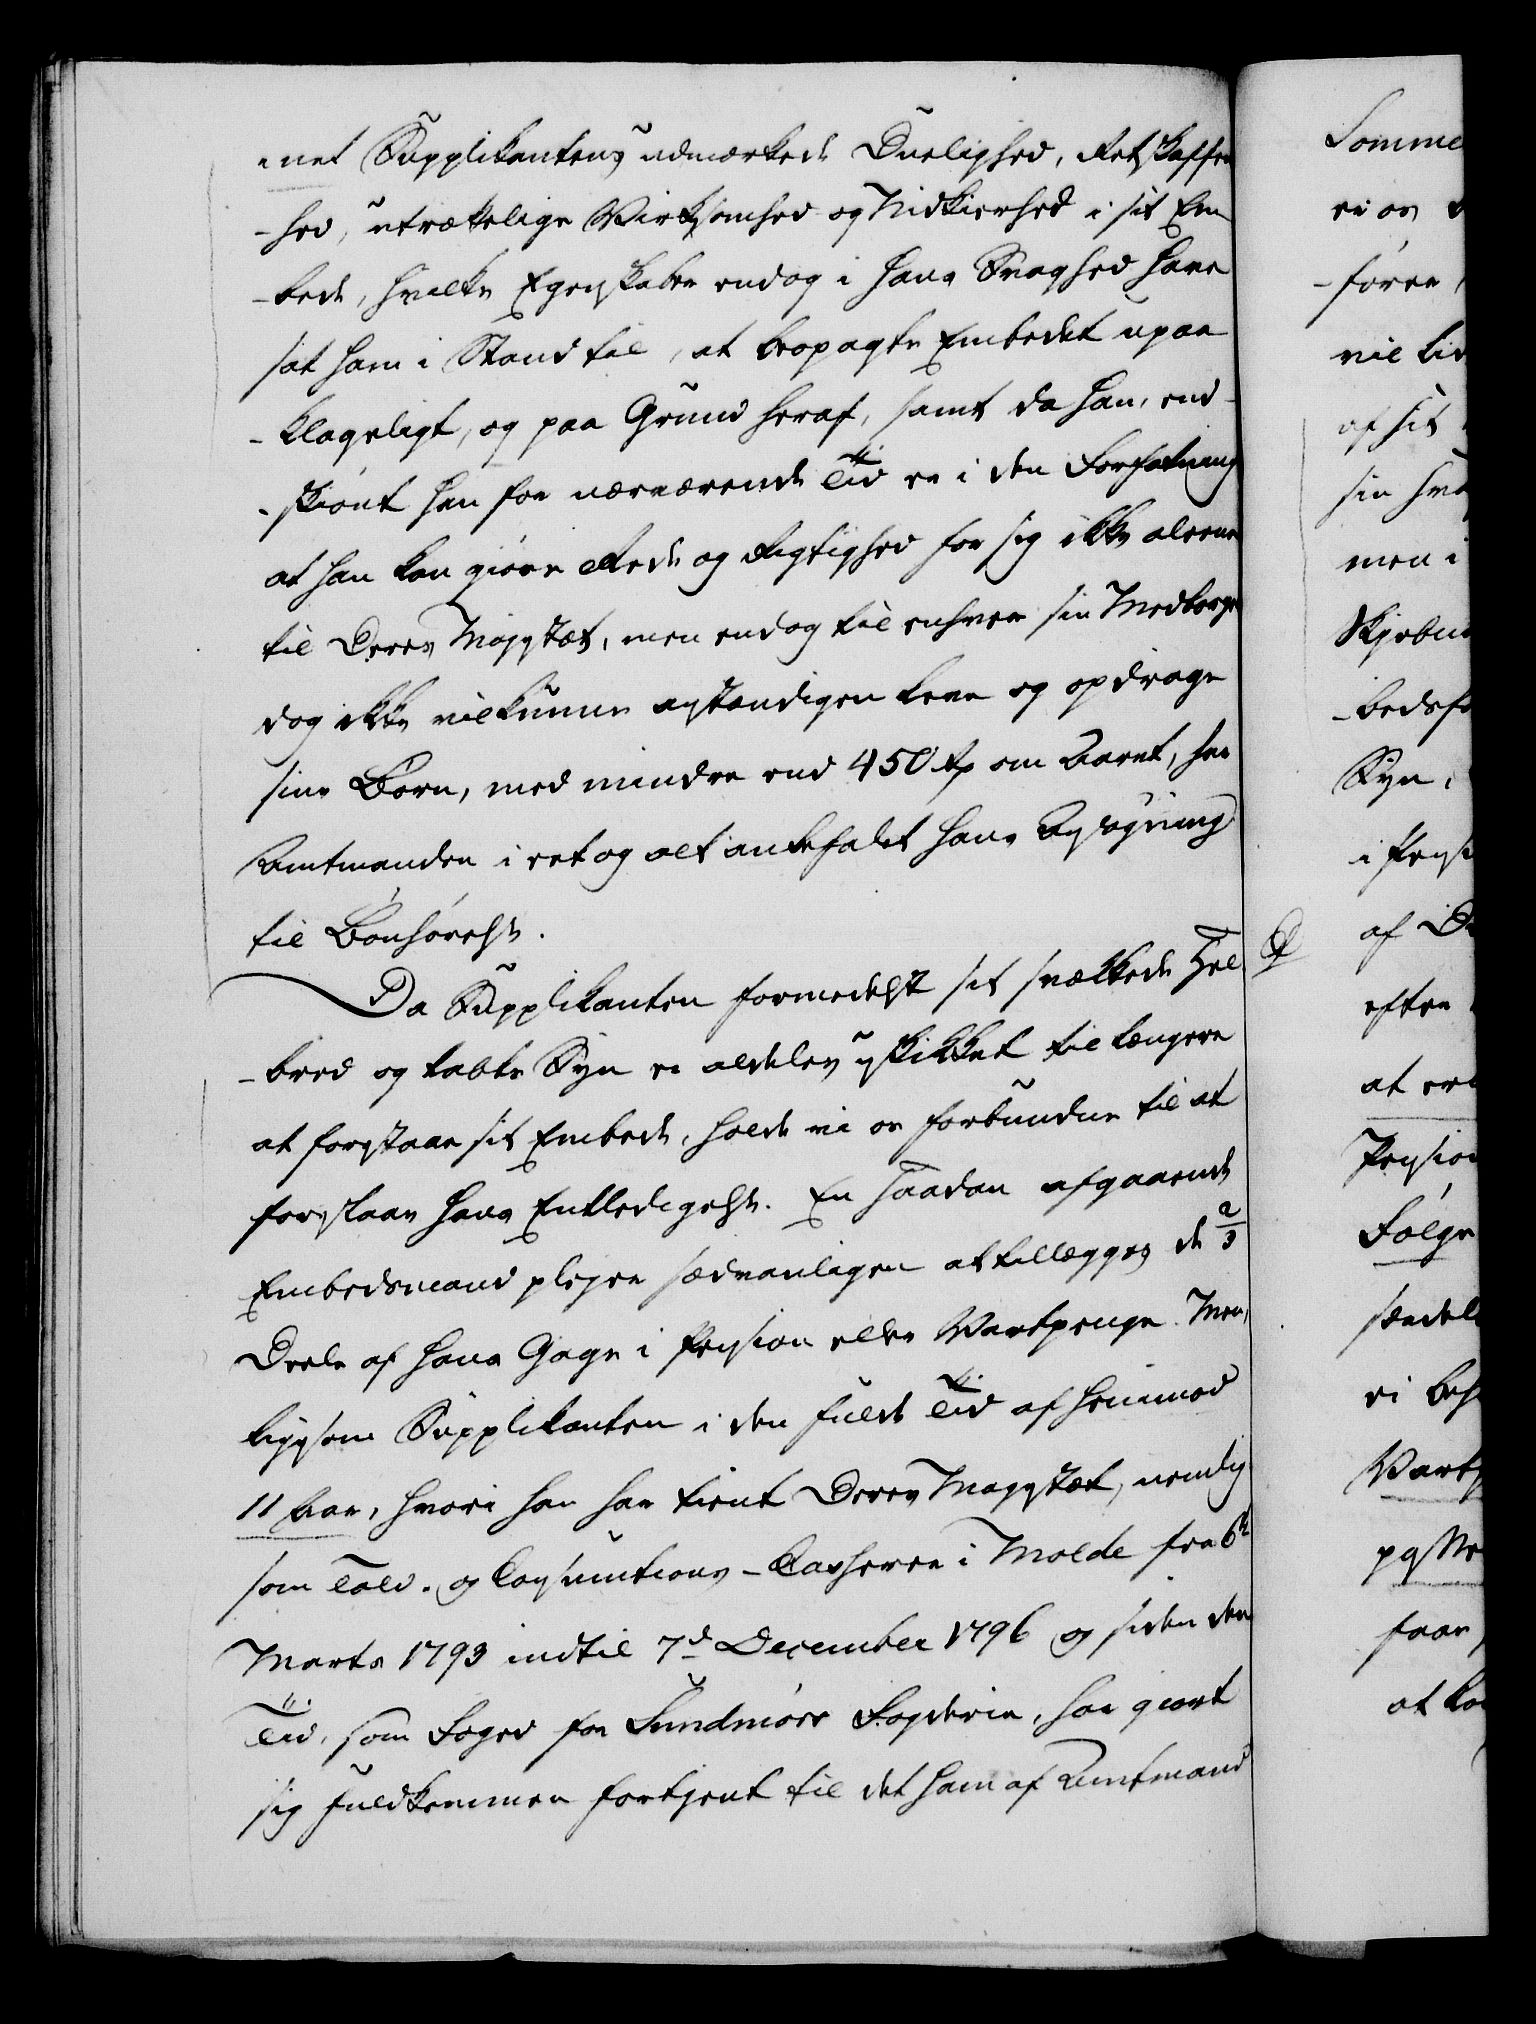 -net Supplikantens udmærkede Duelighed, Retskaffen
-hed, utrættelige Virksomhed og Nidkierhed i sit Em
-bede, hvilke Egenskaber endog i hans Svaghed have
sat ham i Stand til, at besørge Embedet upaa
-klageligt, og paa Grund heraf, samt da han, end-
-skiønt han for nærværende Tid er i den Forfatning
at han kan giøre Rede og Rigtighed for sig ikke alene
til Deres Majestæt, men endog til enhver sin Medborger
dog ikke vil kunne anstændigen leve og opdrage
sine Børn, med mindre end 450 Rd om Aaret, har
Amtmanden i et og alt anbefalet hans Ansøgning
til Bønhørelse.
Da Supplikanten formedelst sit svækkede Hel
-bred og tabte Syn er aldeles uskikket til længere
at forestaae sit Embede, holde vi os forbundne til at
foreslaae hans Entledigelse. En saadan afgaaende
Embedsmand plejer sædvanligen at tillægges de 2/3
Deele af hans Gage i Pension eller Vartpenge. Men,
ligesom Supplikanten i den fulde Tid af henimod
11 Aar, hvori han har tient Deres Majestæt, nemlig
som Told- og Consumtions-Casserer i Molde fra 6te
Marts 1793 indtil 7d December 1796 og siden den
Tid, som Foged for Sundmørs Fogderie, har giort
sig fuldkommen fortjent til det ham af Amtmand
Somme
er os
-føree,
vil bid
af sit
sin
men i
Skjebne
-bedsf
Syn,
i Pensi
af De
efter
at er
Pension
Følge
særdel
vi beh
Vartp
faar
at ko